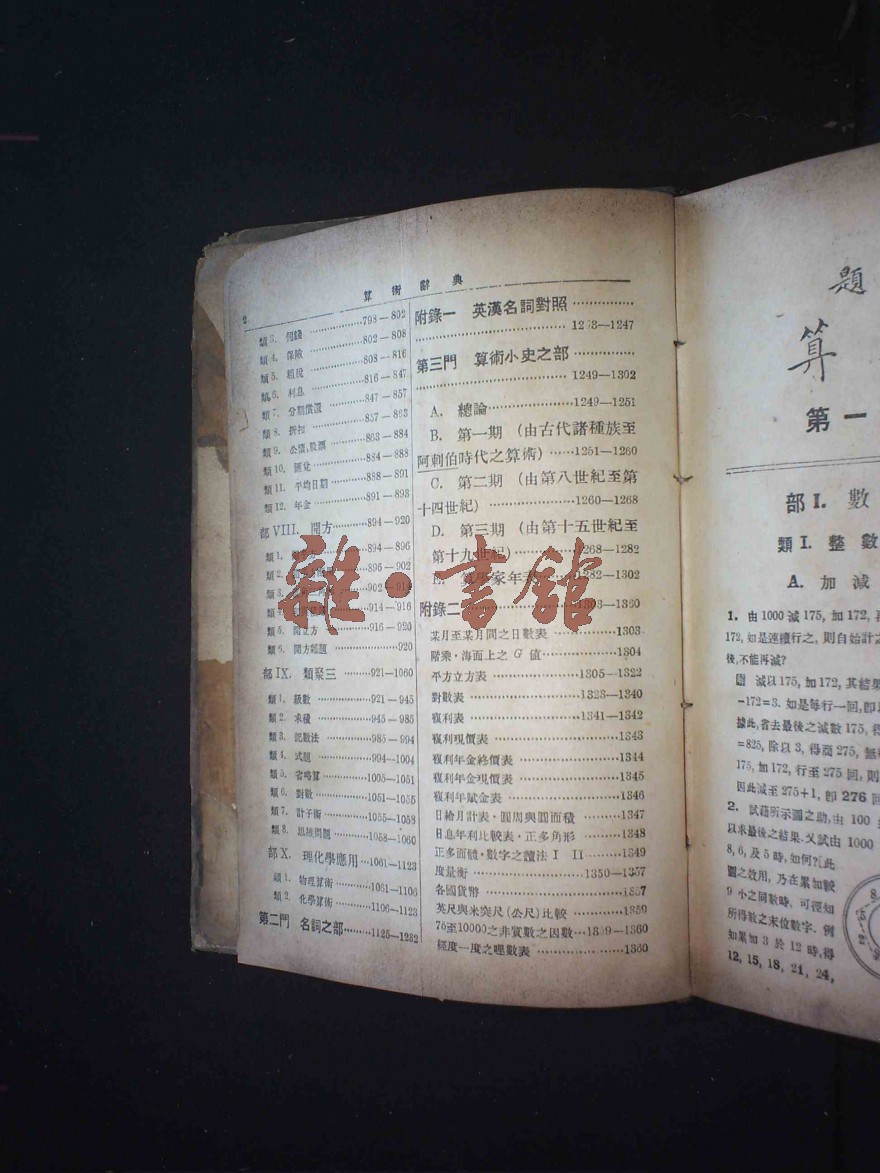 2
算術辭典
類3. 佣錢 798—802
類4. 保險 802—808
類5. 租稅 808—816
類6. 利息 816—847
類7. 分期償還 847—857
類8. 折扣 857—863
類9. 公債,股票 863—884
類10. 匯兌 884—888
類11. 平均日期 888—891
類12. 年金 891—893
部VIII. 開方 894—920
類1. 894—896
類2. 896—902
類3. 902—914
914—916
類5. 開立方 916—920
類6. 開方雜題 920
部IX. 類聚三 921—1060
類1. 級數 921—945
類2. 求積 945—985
類3. 記數法 985—994
類4. 試題 994—1004
類5. 省略算 1005—1051
類6. 對數 1051—1055
類7. 計子術 1055—1058
類8. 思想問題 1058—1060
部X. 理化學應用 1061—1123
類1. 物理算術 1061—1106
類2. 化學算術 1106—1123
第二門 名詞之部 1125—1232
附錄一 英漢名詞對照
1233—1247
第三門 算術小史之部
1249—1302
A. 總論 1249—1251
B. 第一期 (由古代諸種族至
阿剌伯時代之算術) 1251—1260
C. 第二期 (由第八世紀至第
十四世紀) 1260—1268
D. 第三期 (由第十五世紀至
第十九世紀) 1268—1282
E. 算學家年表 1282—1302
附錄二 1303—1360
某月至某月間之日數表 1303
階乘·海面上之 G 值 1304
平方立方表 1305—1322
對數表 1323—1340
複利表 1341—1342
複利現價表 1343
複利年金終價表 1344
複利年金現價表 1345
複利年賦金表 1346
日給月計表·圓周與圓面積 1347
日息年利比較表·正多角形 1348
正多面體·數字之讀法 I II 1349
度量衡 1350—1357
各國貨幣 1357
英尺與米突尺(公尺)比較 1359
75至10000之非質數之因數 1359—1360
經度一度之哩數表 1360
雜·書館
題
算
第一
部I. 數
類I. 整數
A. 加減
1. 由1000減175, 加172,
172, 如是連續行之, 則自始計之
後,不能再減?
解 減以175, 加172, 其結果
-172=3. 如是每行一回,即
據此,省去最後之減數175,
=825, 除以3, 得商275, 無
175, 加172, 行至275回, 則
因此減至275+1, 即276回
2. 試藉所示圖之助,由 100
以求最後之結果.又試由 1000
8, 6, 及5時, 如何?[此
圖之效用, 乃在累加較
9小之同數時, 可徑知
所得數之末位數字. 例
如累加3於12時,得
12, 15, 18, 21, 24,